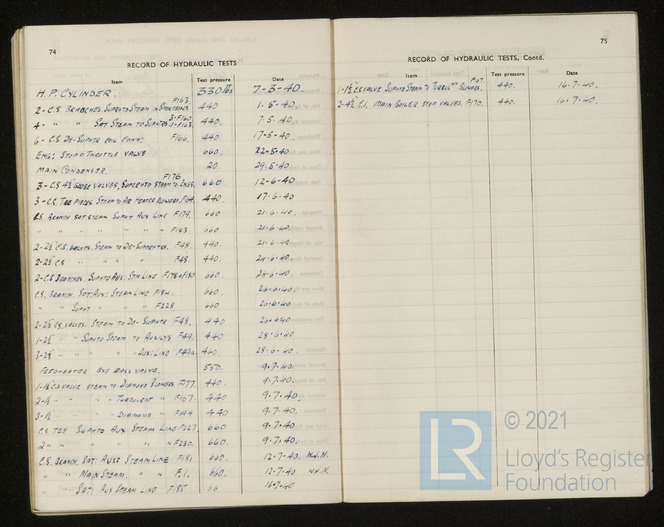 74
RECORD OF HYDRAULIC TESTS
Item Test pressure Date
H.P. CYLINDER. 330 lbs 7-3-40.
F163.
2-C.S. BRANCHES, SUPHTD STEAM 440 1.5.40
3-F160
4- " " SAT STEAM TO SUPHTRS 1-F163 440 7.5.40.
6- C.S. DE-SUPHTR F166. 440 17-5-40.
ENG: STOP & THROTTLE VALVE 660 22-5-40
MAIN CONDENSER. 20 29.5.40
F176.
3-C.S. VALVES, SUPHTD STEAM TO 660 12-6-40
3-C.S. TEE PIECES. STEAM TO AIR HEATER 440. 17.6.40
C.S. BRANCH SAT STEAM AUX. LINE F179. 660 21.6.40.
" " " " " " F183 660 21.6.40.
2-2½ C.S. VALVES. STEAM TO DE-SUPHTER. F48. 440. 21.6.40
2-2½ C.S. " " " F48. 440 24.6.40.
2-C.S. BRANCHES. SUPHTD AUX: STM LINE F178 & F180 660. 24-6-40
C.S. BRANCH. SAT: AUX: STEAM LINE F184. 660. 26.6.40.
" " SUPHT " " " F228 660 26.6.40
2-2½ C.S. VALVES. STEAM TO DE-SUPHTR F48. 440 26.6.40
1-2½ " " SUPHTD STEAM TO F49. 440 28.6.40
3-2½ " " " " AUX: LINE F49A 440 28.6.40.
550. 9.7.40.
1-1½ C.S. VALVE STEAM TO DIAMOND BLOWERS. F177 440. 9.7.40.
2-½ " " " TURBULENT " F167 440 9.7.40.
3-½ " " " DIAMOND " F169 440 9.7.40.
C.S. TEE SUPHTD AUX STEAM LINE F227. 660 9.7.40.
2 " " " " " F230. 660. 9.7.40.
C.S. BRANCH, SAT: AUX: STEAM LINE F181 660. 12.7.40. W.N.
" " MAIN STEAM. " F51. 660. 12.7.40 W.N.
" " SAT: AUX STEAM LINE F185 66 16.7.40
75
RECORD OF HYDRAULIC TESTS, Contd.
Item Test pressure Date
F67.
1-1½ C.S. VALVE SUPHTD STEAM TO BLOWERS. 440. 16.7.40.
2-4½ C.S. MAIN BOILER STOP VALVES. F170. 440 16.7.40.
© 2021
LR Lloyd's Register
Foundation